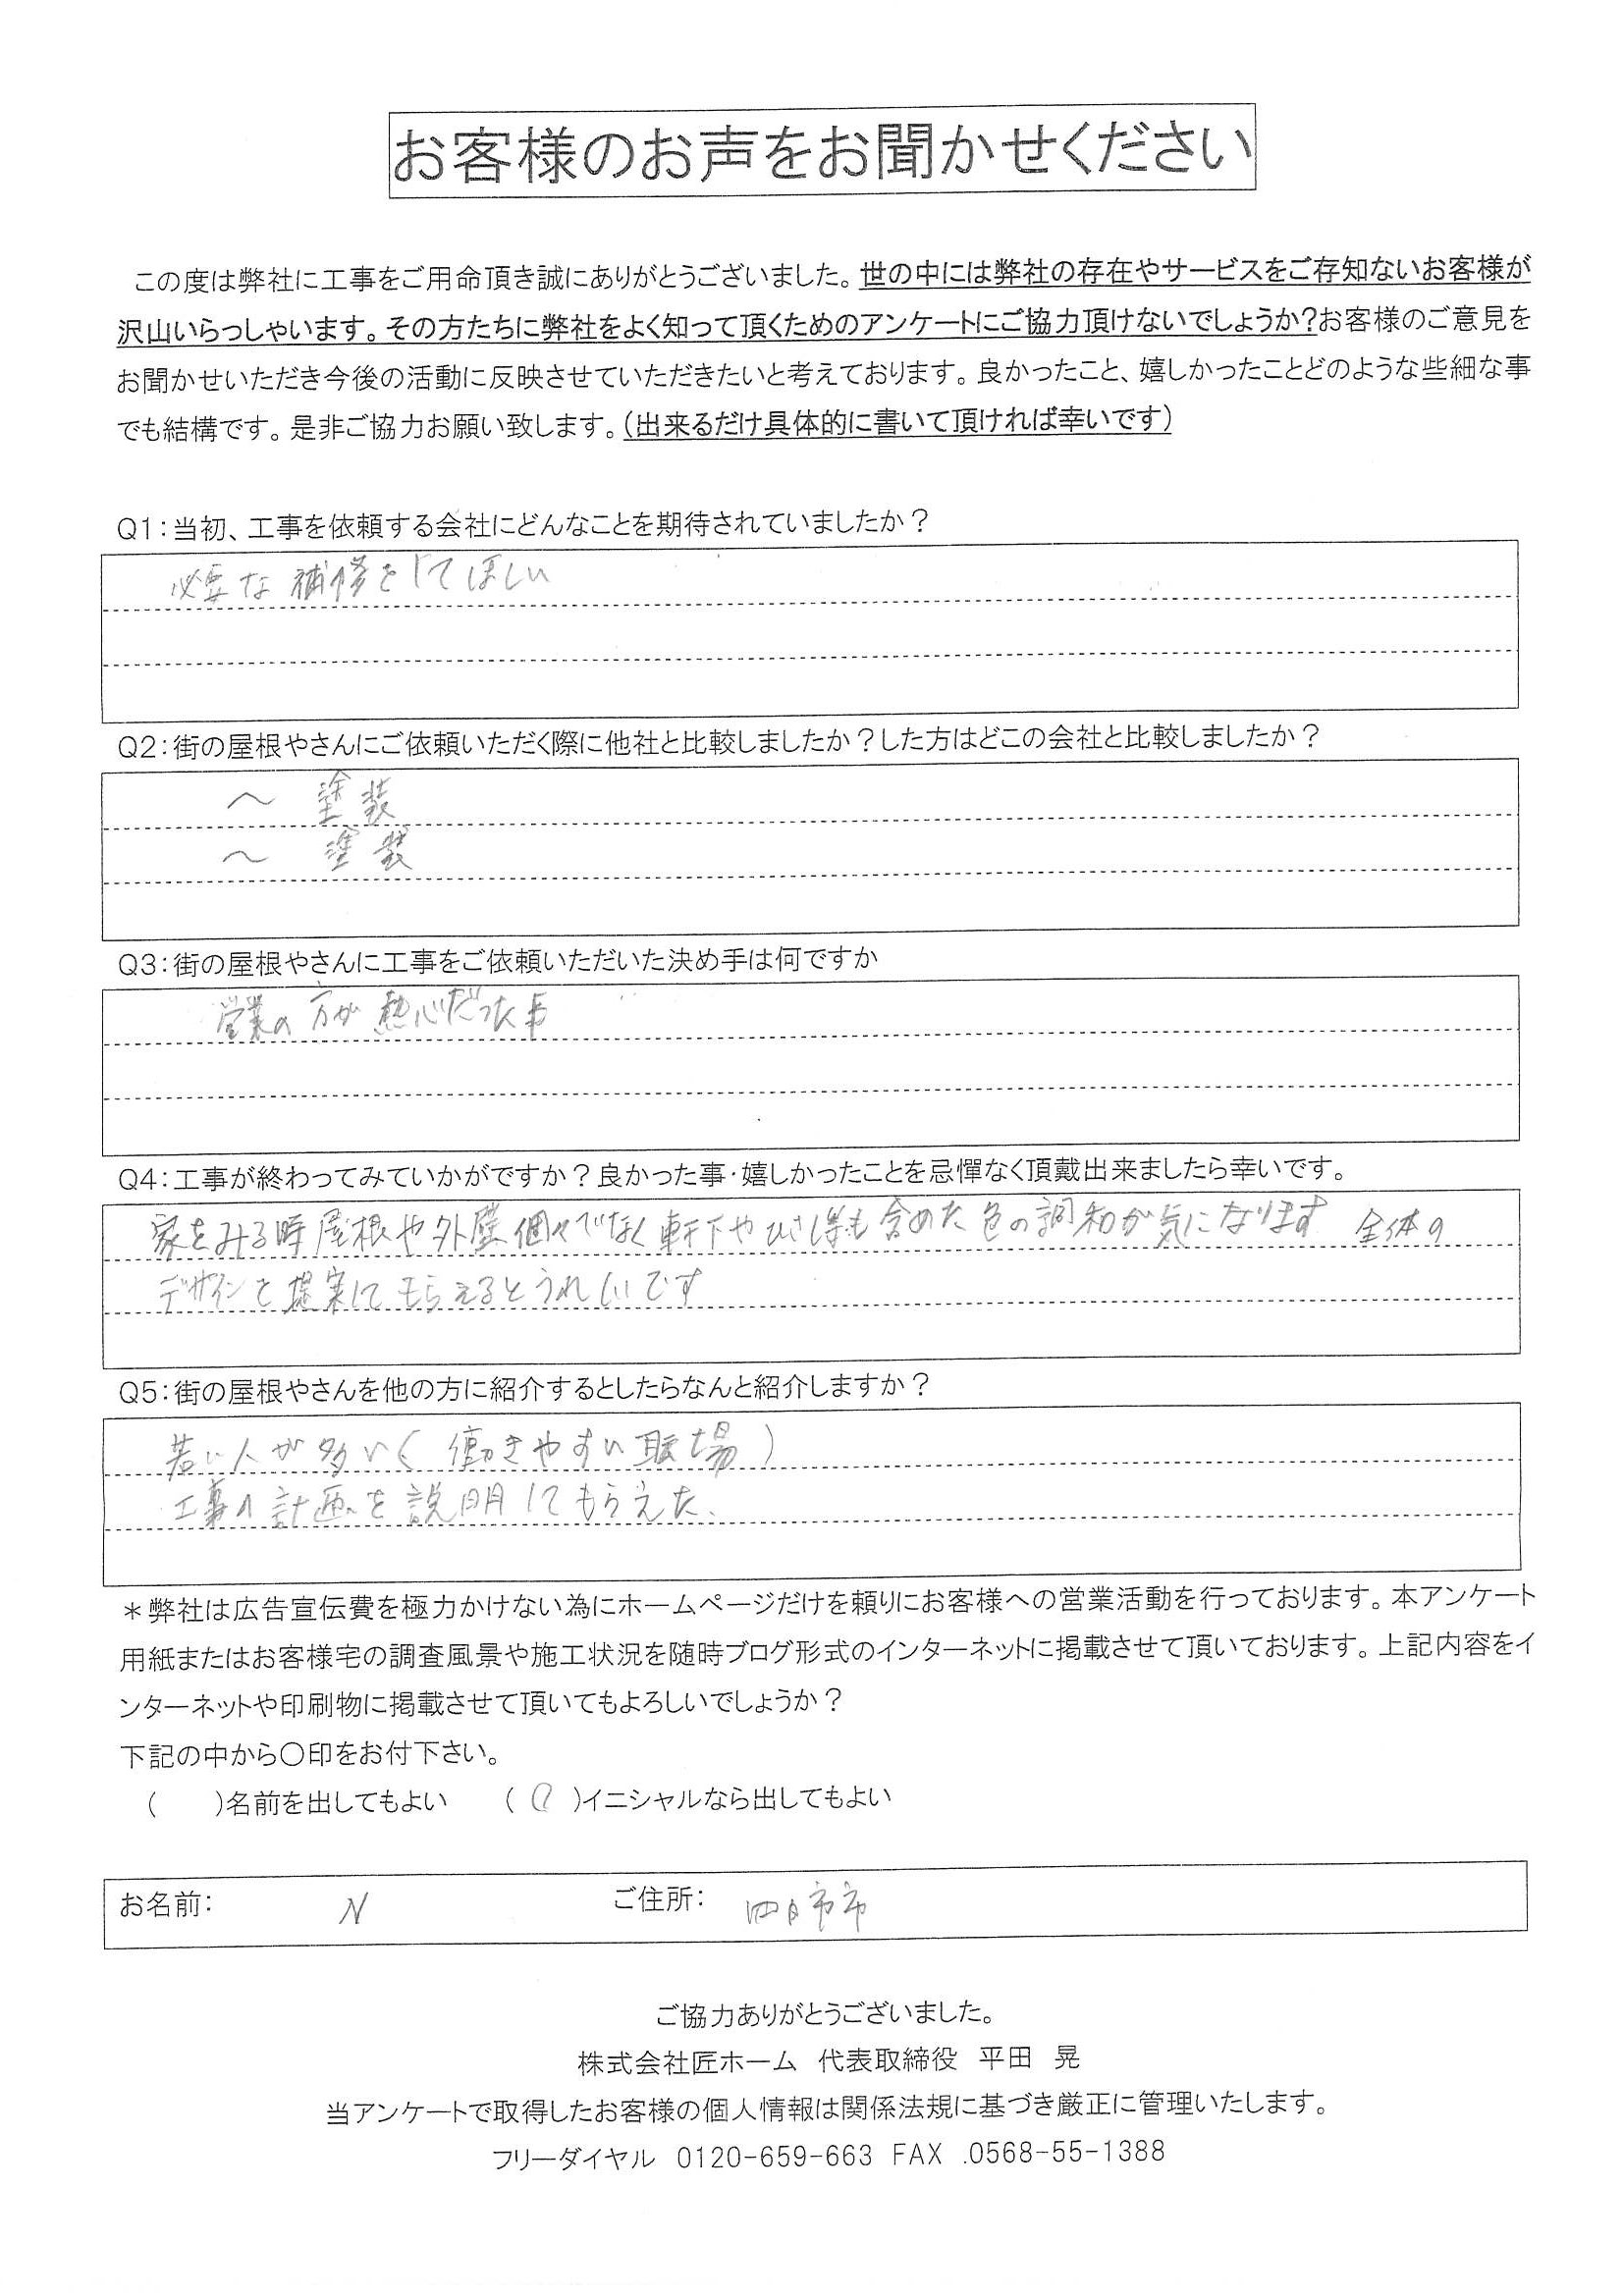 お客様のお声をお聞かせください
この度は弊社に工事をご用命頂き誠にありがとうございました。世の中には弊社の存在やサービスをご存知ないお客様が
沢山いらっしゃいます。その方たちに弊社をよく知って頂くためのアンケートにご協力頂けないでしょうか？お客様のご意見を
お聞かせいただき今後の活動に反映させていただきたいと考えております。良かったこと、嬉しかったことどのような些細な事
でも結構です。是非ご協力お願い致します。（出来るだけ具体的に書いて頂ければ幸いです）
Q1：当初、工事を依頼する会社にどんなことを期待されていましたか？
必要な補修をしてほしい
Q2：街の屋根やさんにご依頼いただく際に他社と比較しましたか？した方はどこの会社と比較しましたか？
〜 塗装
〜 塗装
Q3：街の屋根やさんに工事をご依頼いただいた決め手は何ですか
営業の方が熱心だった事
Q4：工事が終わってみていかがですか？良かった事・嬉しかったことを忌憚なく頂戴出来ましたら幸いです。
家をみる時屋根や外壁個々でなく軒下やひさし等も含めた色の調和が気になります 全体の
デザインを提案してもらえるとうれしいです
Q5：街の屋根やさんを他の方に紹介するとしたらなんと紹介しますか？
若い人が多い（働きやすい職場）
工事の計画を説明してもらえた、
＊弊社は広告宣伝費を極力かけない為にホームページだけを頼りにお客様への営業活動を行っております。本アンケート
用紙またはお客様宅の調査風景や施工状況を随時ブログ形式のインターネットに掲載させて頂いております。上記内容をイ
ンターネットや印刷物に掲載させて頂いてもよろしいでしょうか？
下記の中から〇印をお付下さい。
（　　）名前を出してもよい　　（ 〇 ）イニシャルなら出してもよい
お名前：　N　ご住所：　四日市市
ご協力ありがとうございました。
株式会社匠ホーム　代表取締役　平田　晃
当アンケートで取得したお客様の個人情報は関係法規に基づき厳正に管理いたします。
フリーダイヤル　0120-659-663　FAX .0568-55-1388